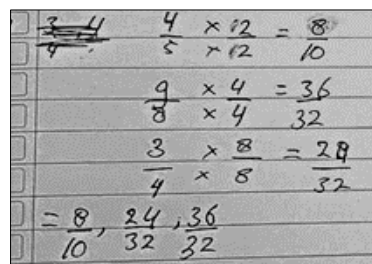 4/5 × 12/12 = 8/10
9/8 × 4/4 = 36/32
3/4 × 8/8 = 24/32
= 8/10, 24/32, 36/32